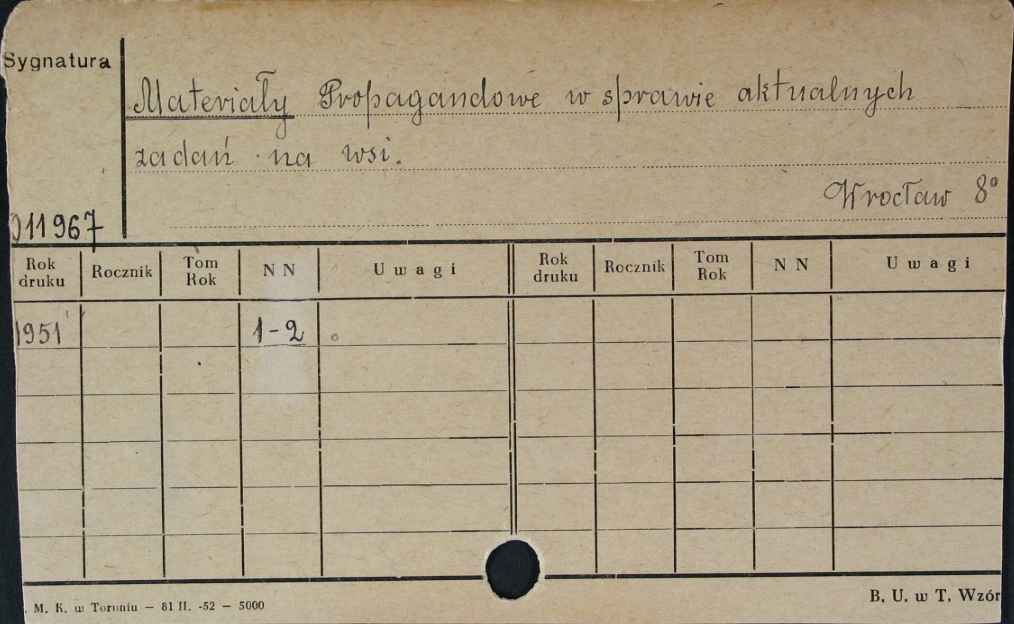 Sygnatura
Materiały Propagandowe w sprawie aktualnych
zadań na wsi.
Wrocław 8°
011967
Rok druku Rocznik Tom Rok N N Uwagi Rok druku Rocznik Tom Rok N N Uwagi
1951 1-2
. M. K. w Toruniu — 81 II. -52 — 5000
B. U. w T. Wzór